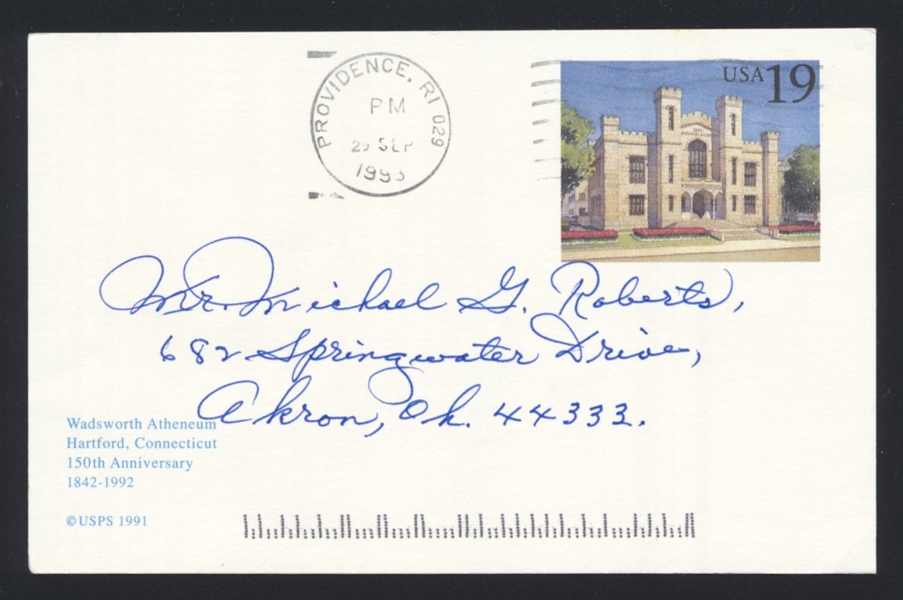 PROVIDENCE, RI 029
PM
29 SEP
1993
USA 19
Mr. Michael G. Roberts,
682 Springwater Drive,
Akron, Oh. 44333.
Wadsworth Atheneum
Hartford, Connecticut
150th Anniversary
1842-1992
©USPS 1991